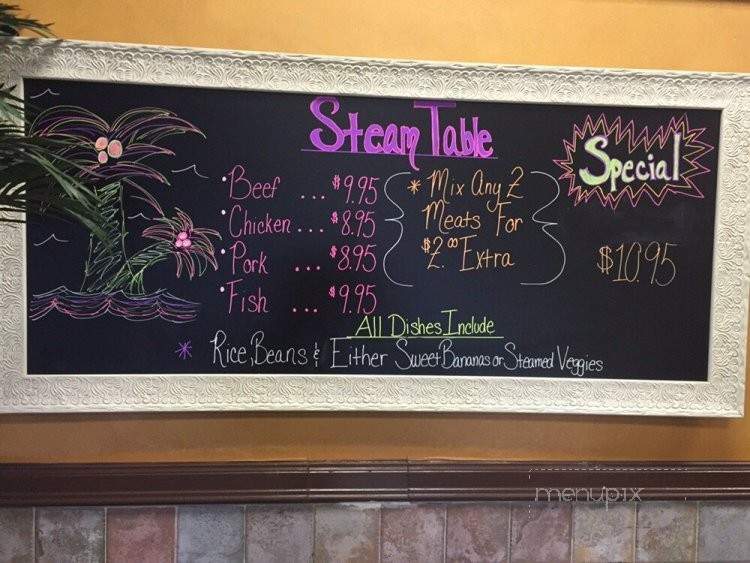 Steam Table
Special
Beef ... $9.95
Chicken ... $8.95
Pork ... $8.95
Fish ... $9.95
* Mix Any 2
Meats For
$2.00 Extra
$10.95
All Dishes Include
* Rice, Beans & Either Sweet Bananas or Steamed Veggies
menupix